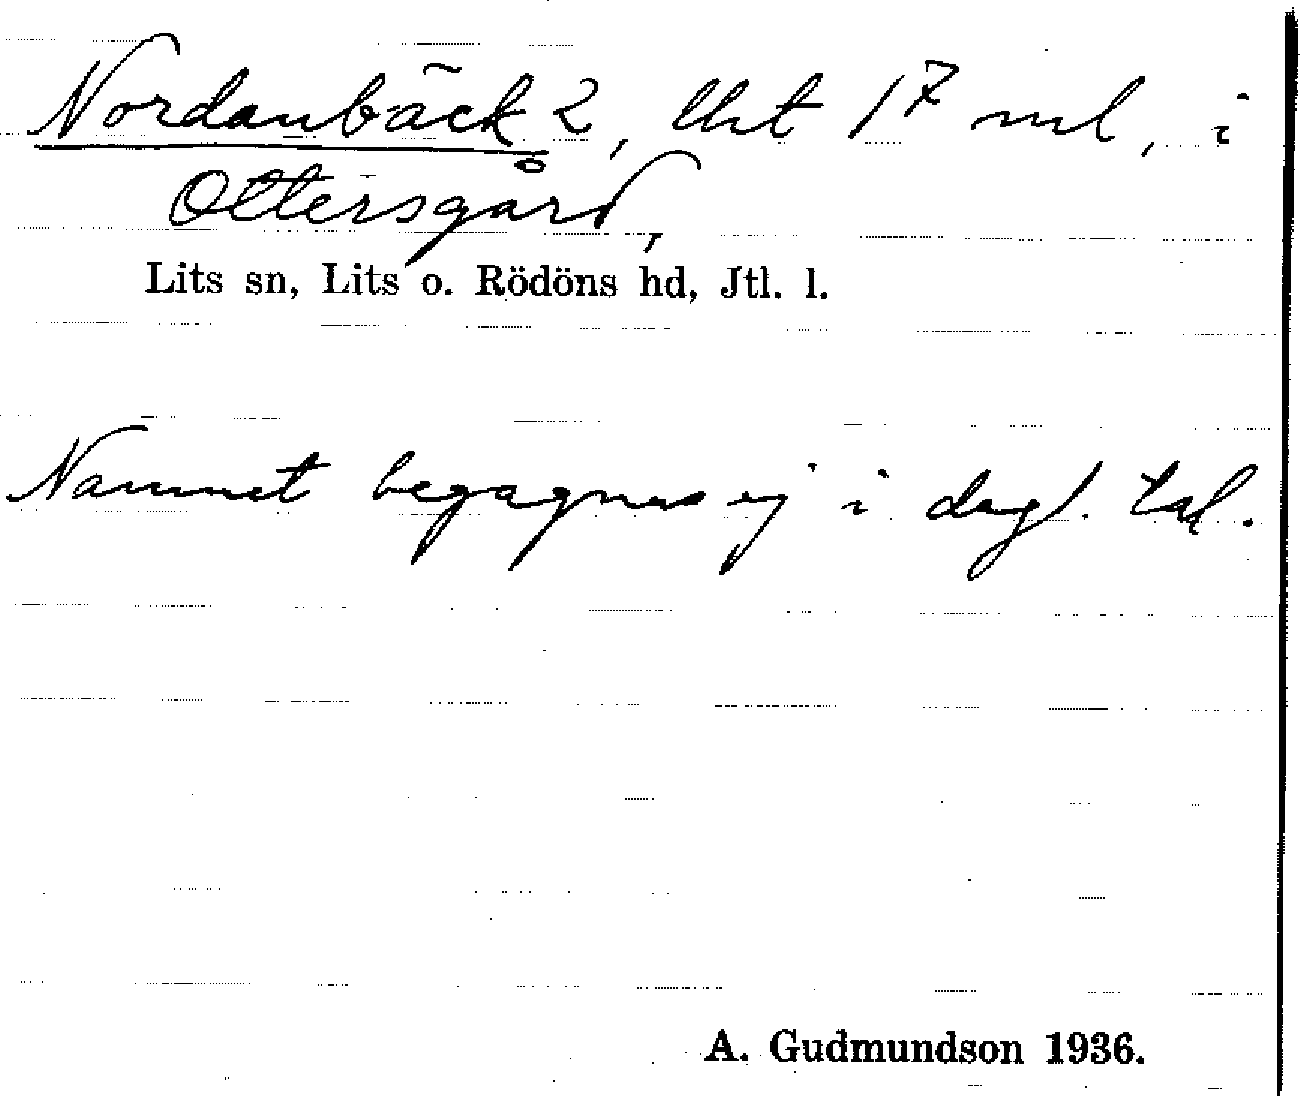 Nordanbäck 2, lht 17 ml, i
Ottersgård,
Lits sn, Lits o. Rödöns hd, Jtl. l.
Namnet begagnas ej i dagl. tal.
A. Gudmundson 1936.